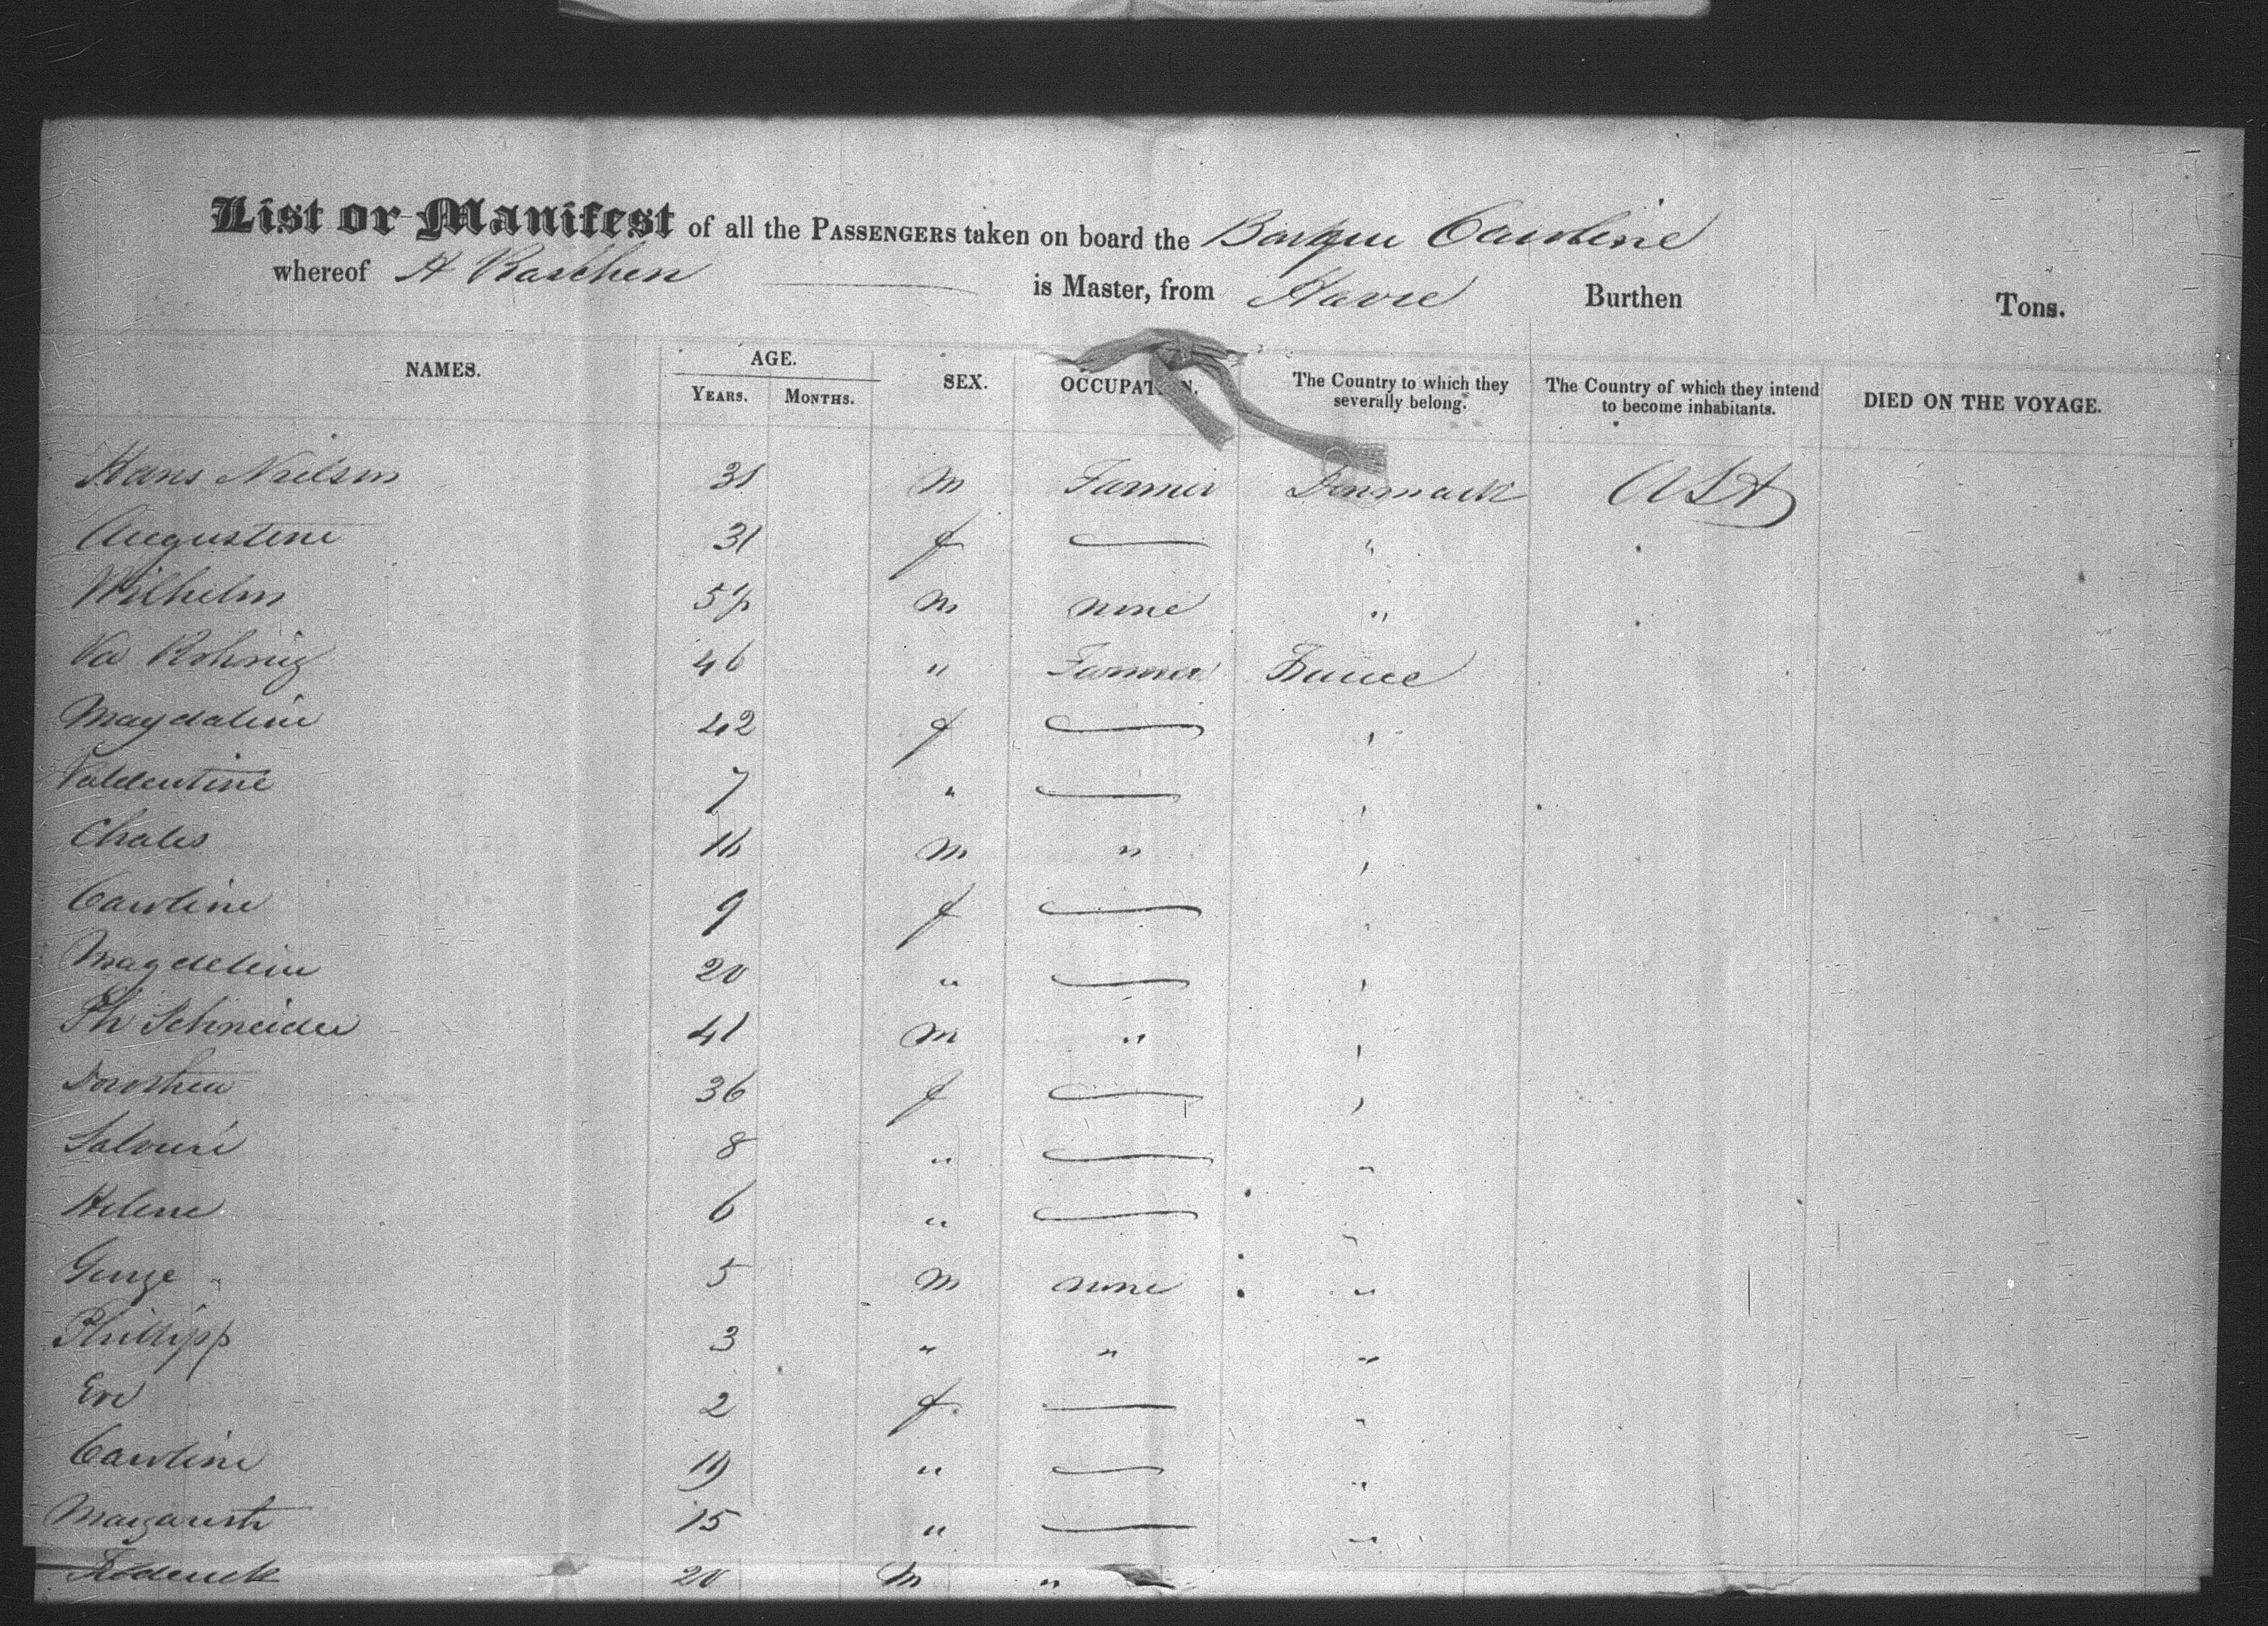 List or Manifest of all the PASSENGERS taken on board the Barque Caroline
whereof A Raschen is Master, from Havre Burthen Tons.
NAMES. AGE. YEARS. MONTHS. SEX. OCCUPAT N. The Country to which they severally belong. The Country of which they intend to become inhabitants. DIED ON THE VOYAGE.
Hans Nielsen 31 m Farmer Denmark
Augustine 31 f — "
Wilhelm m none "
46 " Farmer France
Magdaline 42 f — "
Valdentine 7 " — "
Chales 16 m " "
Caroline 9 f — "
Magdeline 20 " — "
Ph Schneider 41 m " "
Dorothea 36 f — "
8 " — "
Helene 6 " — "
George 5 m none "
Phillipp 3 " " "
Eve 2 f — "
Caroline 19 " — "
Margareth 15 " — "
Frederick 20 m "